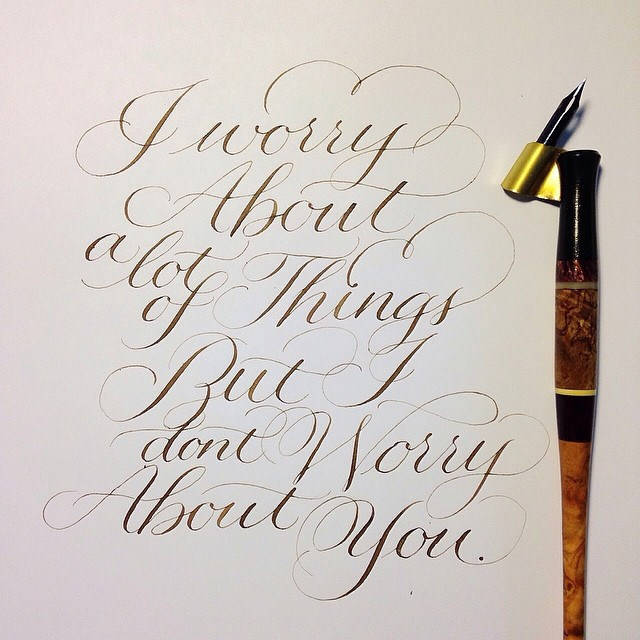 I worry
About
a lot
of Things
But I
dont Worry
About You.